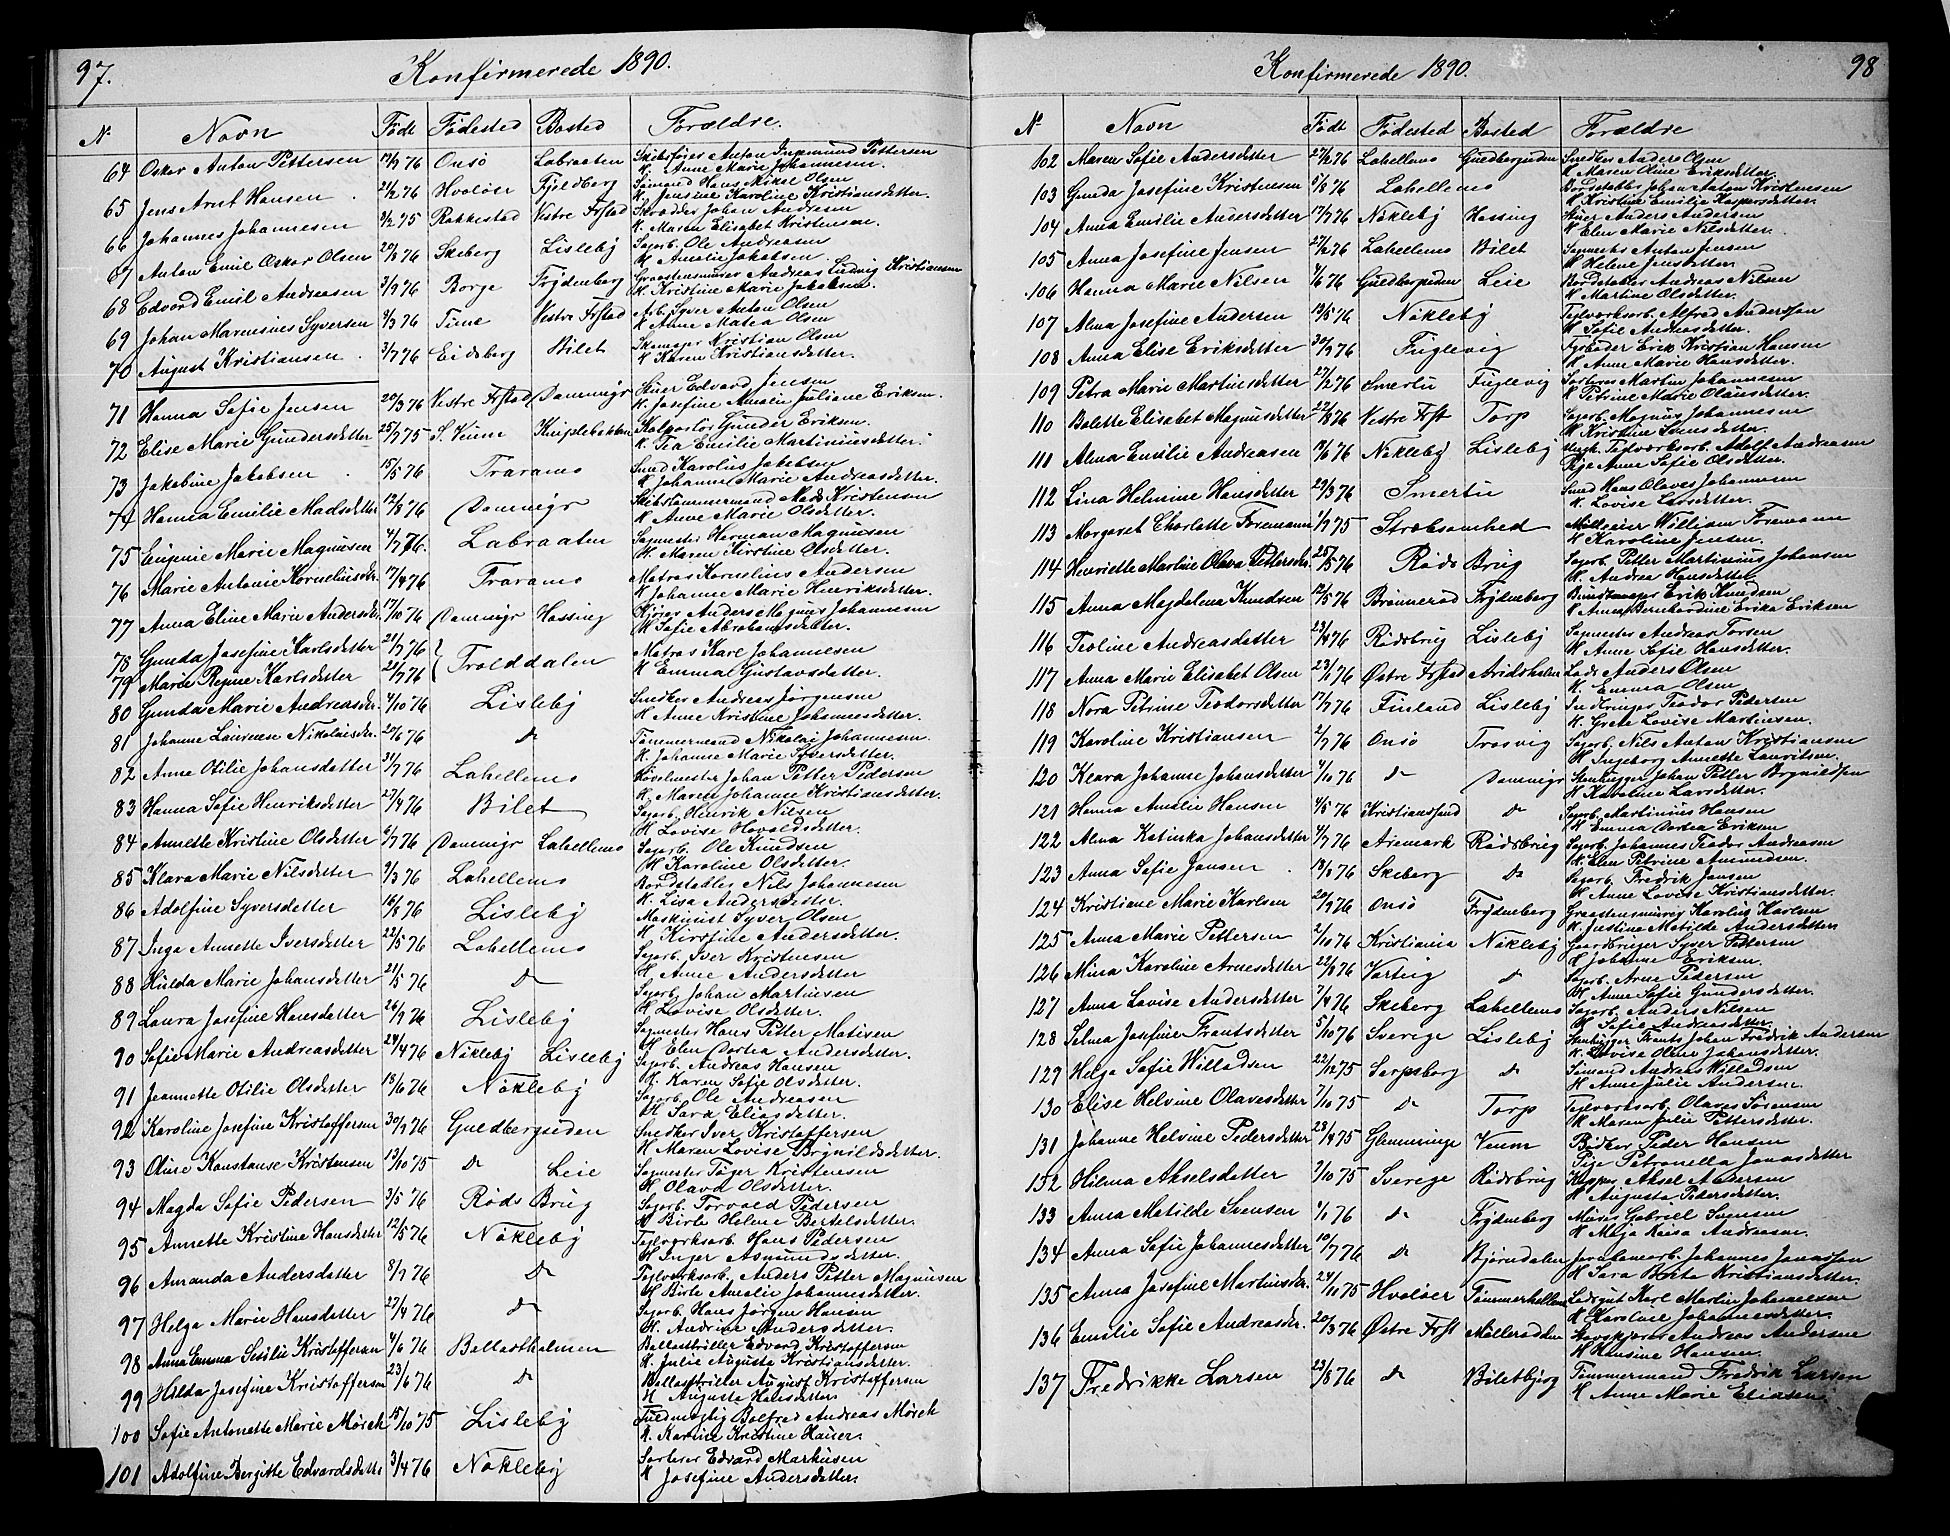 97.
Konfirmerede 1890.
No Navn Født Fødested Bosted Forældre.
64 Oskar Anton Pettersen 19/9 76 Onsø Labraaten Skibsfører Anton Ingemund Pettersen
K. Anne Marie Johannesen.
65 Jens Arnt Hansen 21/2 76 Hvaløer Fjeldberg Sømand Hans Mikal Olsen
K. Jensine Karoline Kristiansdatter.
66 Johannes Johannesen 3/2 75 Rakkestad Vestre Frstad Skrædder Johan Andresen
K. Maren Elisabet Kristensen.
67 Anton Emil Oskar Olsen 20/8 76 Skeberg Lisleby Sagarb. Ole Andreasen
K. Amalie Jakobsen.
68 Edvard Emil Andreasen 3/9 76 Borge Frydenberg Graastensmurer Andreas Ludvig Kristiansen
K. Kristine Marie Jakobsen.
69 Johan Marensius Syversen 9/3 76 Tune Vestre Frstad Arb. Syver Anton Olsen
K Anne Matea Olsen
70 August Kristiansen 3/7 76 Eidsberg Bilet Skomager Kristian Olsen
K Karen Kristiansdatter.
71 Hanna Sofie Jensen 20/3 76 Vestre Frstad Dammyr Huser Edvard Jensen
K. Josefine Amalie Juliane Eriksen.
72 Elise Marie Gundersdatter 25/7 75 S. Veum Kniplebakken Kolportør Gunder Eriksen.
K. Tea Emilie Martiniusdatter.
73 Jakobine Jakobsen 15/5 76 Traramo Smed Karolius Jakobsen
K Johanne Marie Andreasdatter.
74 Hanna Emilie Madsdatter 12/8 76 Dammyr Skibstømmermand Mads Kristensen
K Anne Marie Olsdatter.
75 Eugenie Marie Magnusen 4/7 76. Labraaten Sagmester Herman Magnusen
K. Maren Kirstine Olsdatter.
76 Marie Antonie Korneliusdr. 17/4 76 Traramo Matros Kornelius Andersen
K Johanne Marie Henriksdatter.
77 Anna Eline Marie Andersdr. 17/10 76 Dammyr Hassing Kjører Anders Magnus Johannesen
K Sofie Abrahamsdatter.
78 Gunda Josefine Karlsdatter 21/7 76 Trolddalen Matros Karl Johannesen
79 Marie Regine Karlsdatter 21/7 76 K Emma Gustavsdatter.
80 Gunda Marie Andreasdr. 4/10 76 Lisleby Snedker Andreas Jørgensen
K Anne Kristine Johannesdatter.
81 Johanne Laurense Nikolaisdr. 27/6 76 do Tømmermand Nikolai Johannesen.
K. Johanne Marie Syversdatter.
82 Anne Otilie Johansdatter 31/7 76 Lahellemo Høvelmester Johan Petter Pedersen
K. Maren Johanne Kristiansdatter.
83 Hanna Sofie Henriksdatter 27/4 76 Bilet Sagarb. Henrik Nilsen
K Lovise Havaldsdatter.
84 Annette Kristine Olsdatter 6/7 76 Dammyr Lahellemo Sagarb. Ole Knudsen
K Karoline Olsdatter.
85 Klara Marie Nilsdatter 9/3 76 Lahellemo Bordstabler Nils Johannesen
K. Lisa Andersdatter.
86 Adolfine Syversdatter 16/8 76 Lisleby Maskinist Syver Olsen
K Kirstine Andersdatter.
87 Inga Annette Iversdatter 22/5 76 Lahellemo Sagarb. Iver Kristensen
K. Anne Andersdatter.
88 Hulda Marie Johansdatter 21/5 76 do Sagarb. Johan Martinsen
K Lovise Olsdatter.
89 Laura Josefine Hansdatter 26/9 76 Lisleby Sagmester Hans Petter Matisen
K Elen Dortea Andersdatter.
90 Sofie Marie Andreasdatter 24/4 76 Nøkleby Lisleby Sagarb. Andreas Hansen
K. Karen Sofie Olsdatter.
91 Jeannette Otilie Olsdatter 18/6 76 Nøkleby Sagarb. Ole Andreasen
K Sara Eliasdatter.
92 Karoline Josefine Kristoffersen 30/9 76 Guldbergsiden Snedker Iver Kristoffersen
K Maren Lovise Brynildsdatter.
93 Oline Konstanse Kristensen 13/10 75 do Leie Sagmester Tøger Kristensen
K Olava Olsdatter.
94 Magda Sofie Pedersen 3/5 76 Røds Brug Sagarb. Torvald Pedersen
K Birte Helene Bertelsdatter.
95 Annette Kristine Hansdatter 12/5 76 Nøkleby Teglværksarb. Hans Pedersen
K Inger Asmundsdatter.
96 Amanda Andersdatter 8/9 76 do Teglværksarb. Anders Petter Magnusen
K Birte Amalie Johannesdatter.
97 Helga Marie Hansdatter 27/4 76 do Sagarb. Hans Jørgen Hansen
K. Andrine Andersdatter.
98 Anna Emma Sesilie Kristoffersen 4/6 76 Ballastholmen Ballasttriller Edvard Kristoffersen
K. Julie Augusta Kristiansdatter.
99 Hilda Josefine Kristoffersen 23/6 76 do Ballasttriller August Kristoffersen
K Augusta Hansdatter.
100 Sofie Antonette Marie Mørch 15/10 75 Lisleby Fuldmægtig Bolfred Andreas Mørch
K. Karine Kristine Hauer.
101 Adolfine Bergitte Edvardsdatter 3/4 76 Nøkleby Sorterer Edvard Markusen
K Josefine Andersdatter.
Konfirmerede 1890.
98
No Navn Født Fødested Bosted Forældre
102 Maren Sofie Andersdatter 27/2 76 Lahellemo Guldbergsiden Snedker Anders Olsen
K Maren Oline Eriksdatter.
103 Gunda Josefine Kristensen 5/8 76 Lahellemo Bordstabler Johan Anton Kristensen
K Kristine Emilie Kaspersdatter.
104 Anna Emilie Andersdatter 17/7 76 Nøkleby Hassing Huser Anders Andersen
K Elen Marie Nilsdatter.
105 Anna Josefine Jensen 27/2 76 Lahellemo Bilet Sagmester Anton Jensen
K Helene Jensdatter.
106 Hanna Marie Nilsen 7/6 76 Guldbergsiden Leie Bordstabler Andreas Nilsen
K Martine Olsdatter.
107 Alma Josefine Andersen 19/5 76 Nøkleby Teglværksarb. Alfred Andersson
K Sofie Andreasdatter.
108 Anna Elise Eriksdatter 30/9 76 Fuglevig Fyrbøder Erik Kristian Hansen
K. Anne Marie Hansdatter.
109 Petra Marie Martinsdatter 27/2 76 Smertu Fuglevig Sorterer Martin Johannesen
K Petrine Marie Olausdatter.
110 Bolette Elisabet Magnusdatter 22/8 76 Vestre Frst Torp Sagarb. Magnus Johannesen
K Kristine Svensdatter.
111 Alma Emilie Andreasen 17/6 76 Nøkleby Lisleby Ungk. Teglværksarb. Adolf Andreasen
Pige Anne Sofie Olsdatter.
112 Lina Helmine Hansdatter 29/3 76 Smertu Smed Hans Olaves Johannesen
K. Lovise Larsdatter.
113 Margaret Charlotte Foremann 1/9 75 Stræbsomhed Mølleeier William Foremann
K Karoline Jensen.
114 Henriette Martine Olava Pettersdr. 25/5 76 Røds Brug Sagarb. Petter Martinius Johansen
K. Andrea Hansdatter
115 Anna Magdalena Knudsen 12/5 76 Brønnerød Frydenberg Bundtmager Erik Knudsen
K Anna Bernhardine Erika Eriksen
116 Teoline Andreasdatter 23/4 76 Rødsbrug Lisleby Sagmester Andreas Torsen
K Anne Sofie Hansdatter.
117 Anna Marie Elisabet Olsen 23/1 76 Østre Frstad Arildsholm Lods Anders Olsen
K. Emma Olsen
118 Nora Petrine Teodorsdatter 17/7 76 Finland Lisleby Indkringer Teodor Pedersen
K. Grete Lovise Martinsen.
119 Karoline Kristiansen 2/7 76 Onsø Trosvig Sagarb. Nils Anton Kristiansen
K Ingeborg Annette Lauritsen.
120 Klara Johanne Johansdatter 4/10 76 do Dammyr Stenhugger Johan Petter Brynildsen
K Karoline Larsdatter.
121 Hanna Amalie Hansen 4/5 76 Kristianssand do Sagarb. Martinius Hansen
K Emma Dortea Eriksen
122 Alma Katinka Johansdatter 4/7 76 Aremark Rødsbrug Sagarb. Johannes Teodor Andreasen
K. Elen Petrine Amundsen.
123 Anna Sofie Jansen 18/8 76 Skeberg do Sagarb. Fredrik Jansen
K Anne Lovise Kristiansdatter.
124 Kristiane Marie Karlsen 20/9 76 Onsø Frydenberg Graastensmurer Karolius Karlsen
K. Justine Matilde Andersdatter
125 Anna Marie Pettersen 2/10 76 Kristiania Nøkleby Gaardbruger Syver Pettersen
K Johanne Eriksen.
126 Mina Karoline Arnesdatter 22/8 76 Varteig do Sagarb. Arne Pedersen
K Anne Sofie Gundersdatter.
127 Anna Lovise Andersdatter 7/4 76 Skeberg Lahellemo Sagarb. Anders Nilsen
K Sofie Andreasdatter.
128 Selma Josefine Frantsdatter 5/10 76 Sverige Lisleby Stenhugger Frants Johan Fredrik Andersen
K. Lovise Oline Johansdatter.
129 Helga Sofie Willadsen 22/12 75 Sarpsborg do Sømand Andreas Willadsen
K Anne Julie Andersen.
130 Elise Helvine Olavesdatter 7/10 75 do Torp Teglværksarb. Olaves Sørensen
K Maren Julie Pettersdatter.
131 Johanne Helvine Pedersdatter 23/8 75 Glemminge Veum Bødker Peder Hansen
Pige Petronella Jonasdatter
132 Hilma Akselsdatter 7/10 75 Sverige Rødsbrug Kusper Aksel Andersen
K Augusta Petersdatter.
133 Anna Matilde Svensen 9/1 76 do Frydenberg Murer Gabriel Svensen
K Maja Kaisa Andreasen.
134 Anna Sofie Johannesdatter 10/7 76 do Bjørndalen Jernbanearb. Johannes Jonasson
K Sara Britta Kristiansdatter.
135 Anna Josefine Martinsdr. 24/10 75 Hvaløer Tømmerhellen Lodsgut Karl Martin Johannesen
K Karoline Johannesdatter.
136 Emilie Sofie Andreasdr. 20/3 76 Østre Frst Mølleradlen Skovskjører Andreas Andersen
K Hansine Hansen.
137 Fredrikke Larsen 23/8 76 do Biletbjerg Tømmermand Fredrik Larsen
K Anne Marie Eliasen.